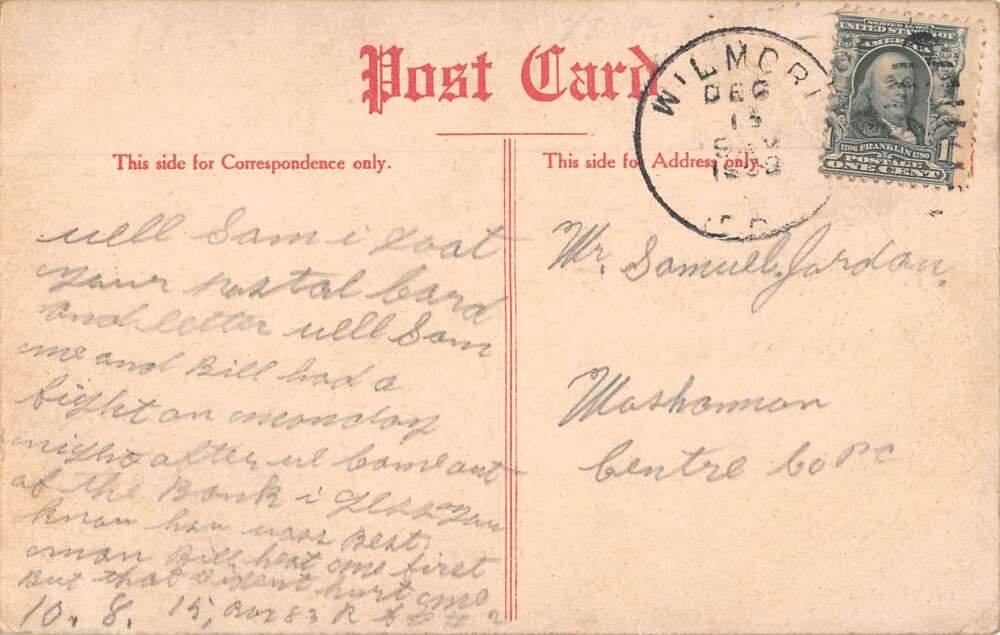 Post Card
This side for Correspondence only.
This side for Address only.
WILMOR
DEC
13
1909
SERIES 1902
UNITED STATES OF
AMERICA
1706 FRANKLIN 1790
POSTAGE
ONE CENT
1
well Sam i goat
your postal Card
and letter well Sam
me and Bill had a
fight on monday
night after we Came out
of the Bank i gess you
know how wass Best
man Bill heat me first
But that dident hurt me
10. 8. 15, Box 83 R
Mr. Samuel Jordan,
Moshannon
Centre Co Pa